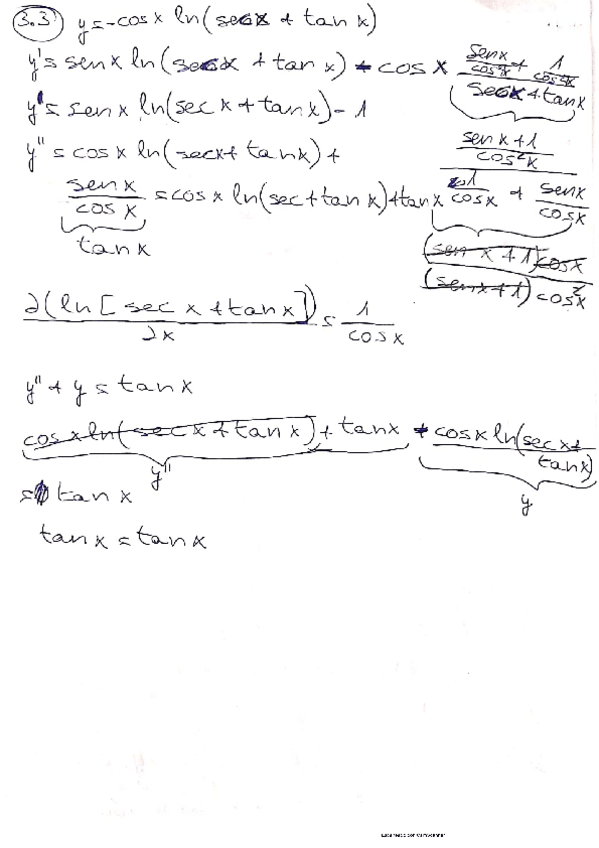 3.3 y = -cos x ln(sec x + tan x)
y' = sen x ln(sec x + tan x) - cos x (sen x/cos²x + 1/cos²x)/(sec x + tan x)
y' = sen x ln(sec x + tan x) - 1
(sen x + 1)/cos²x
y'' = cos x ln(sec x + tan x) +
sen x/cos x = cos x ln(sec + tan x) + tan x
1/cos x + sen x/cos x
tan x
(sen x + 1) cos x
(sen x + 1) cos² x
∂(ln[sec x + tan x])/∂x = 1/cos x
y'' + y = tan x
cos x ln(sec x + tan x) + tan x - cos x ln(sec x + tan x)
y''
y
= tan x
tan x = tan x